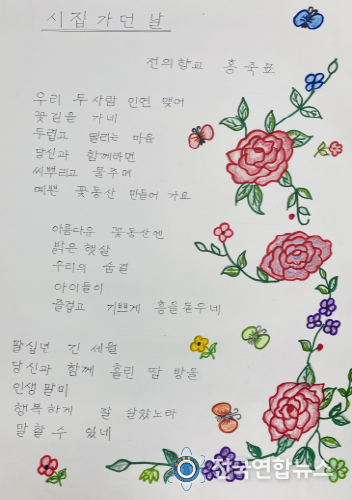 시집가던 날
전의향교 홍죽표
우리 두사람 인연 맺어
꽃길을 가네
두렵고 떨리는 마음
당신과 함께라면
씨뿌리고 물주며
예쁜 꽃동산 만들어 가요
아름다운 꽃동산엔
밝은 햇살
우리의 숨결
아이들이
즐겁고 기쁘게 흥을 돋우네
팔십년 긴 세월
당신과 함께 흘린 땀 방울
인생 말미
행복하게 잘 살았노라
말 할 수 있네
전국연합뉴스